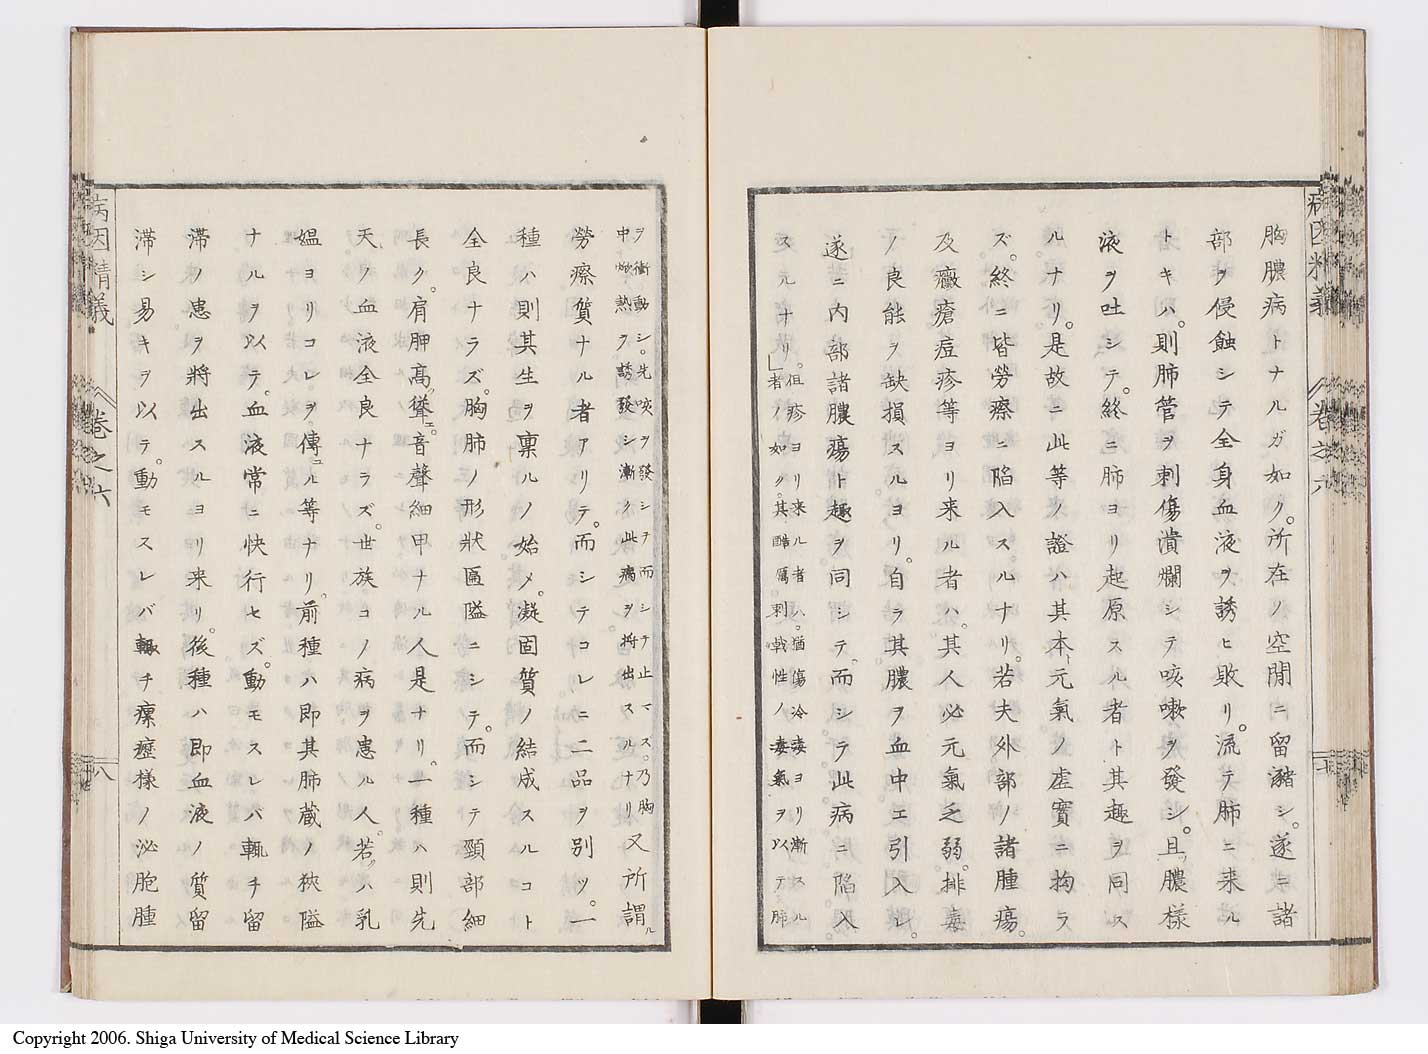 胸膿病トナルガ如ク。所在ノ空間ニ留瀦シ。遂ニ諸
部ヲ侵蝕シテ全身血液ヲ誘ヒ敗リ。流テ肺ニ来ル
トキハ。則肺管ヲ刺傷潰爛シテ咳嗽ヲ發シ。且ツ膿様
液ヲ吐シテ。終ニ肺ヨリ起原スル者ト其趣ヲ同ス
ルナリ。是故ニ此等ノ證ハ其本ト元氣ノ虚實ニ拘ラ
ズ。終ニ皆勞瘵ニ陥入スルナリ。若夫外部ノ諸腫瘍。
及癥瘡痘疹等ヨリ来ル者ハ。其人必元氣乏弱。排毒
ノ良能ヲ缺損スルヨリ。自ラ其膿ヲ血中エ引入レ。
遂ニ内部諸膿瘍ト趣ヲ同シテ而シテ此病ニ陥入
スルナリ。
但疹ヨリ来ル者ハ。猶傷冷毒ヨリ漸スル
者ノ如ク。其酷厲刺戟性ノ毒氣ヲ以テ肺
病因精義
卷之六
ヲ衝動シ。先咳ヲ發シテ而シテ止マス。乃胸
中焮熱ヲ誘發シ漸ク此病ヲ将出スルナリ
又所謂ル
勞瘵質ナル者アリテ。而シテコレニ二品ヲ別ツ。一
種ハ則其生ヲ稟ルノ始メ。凝固質ノ結成スルコト
全良ナラズ。胸肺ノ形狀區隘ニシテ。而シテ頸部細
長ク。肩胛高ク聳エ。音聲細甲ナル人是ナリ。一種ハ則先
天ノ血液全良ナラズ。世族コノ病ヲ患ル人。若クハ乳
媼ヨリコレヲ傳ユル等ナリ。前種ハ即其肺蔵ノ狹隘
ナルヲ以テ。血液常ニ快行セズ。動モスレバ輒チ留
滞ノ患ヲ將出スルヨリ来リ。後種ハ即血液ノ質留
滞シ易キヲ以テ。動モスレバ輒チ瘰癧様ノ泌胞腫
病因精義
卷之六
八
Copyright 2006. Shiga University of Medical Science Library